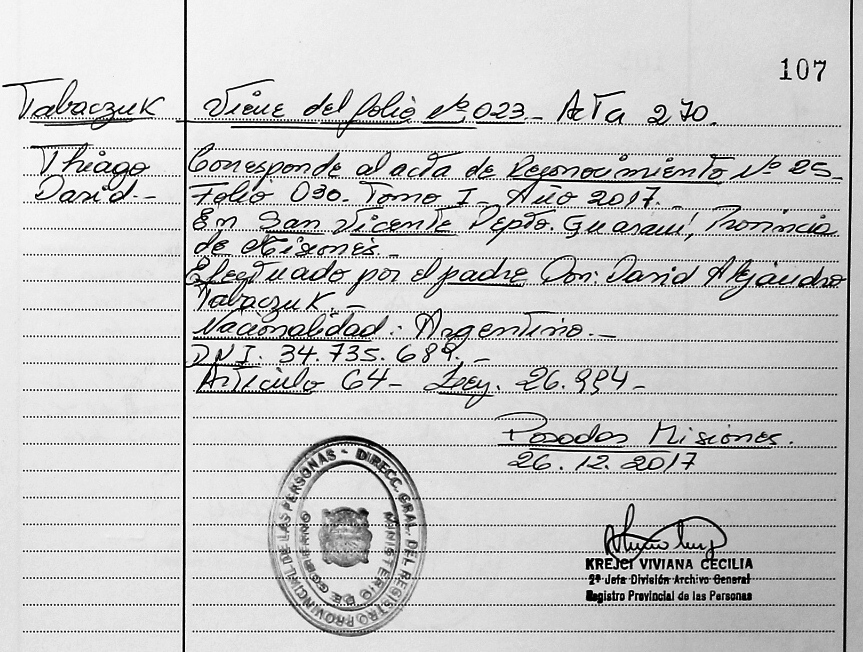 107
Tabaczuk Viene del folio Nº 023_ Acta 270.
Thiago Corresponde al acta de Reconocimiento Nº 25_
David._ Folio 030. Tomo I_ Año 2017._
En San Vicente Depto. Guaraní, Provincia
de Misiones._
Efectuado por el padre Don: David Alejandro
Tabaczuk._
Nacionalidad: Argentino._
DNI. 34.735.689._
Artículo 64_ Ley. 26.994_
Posadas Misiones.
26.12.2017
DIRECC. GRAL. DEL REGISTRO PROVINCIAL DE LAS PERSONAS -
MINISTERIO DE GOBIERNO
KREJCI VIVIANA CECILIA
2ª Jefa División Archivo General
Registro Provincial de las Personas